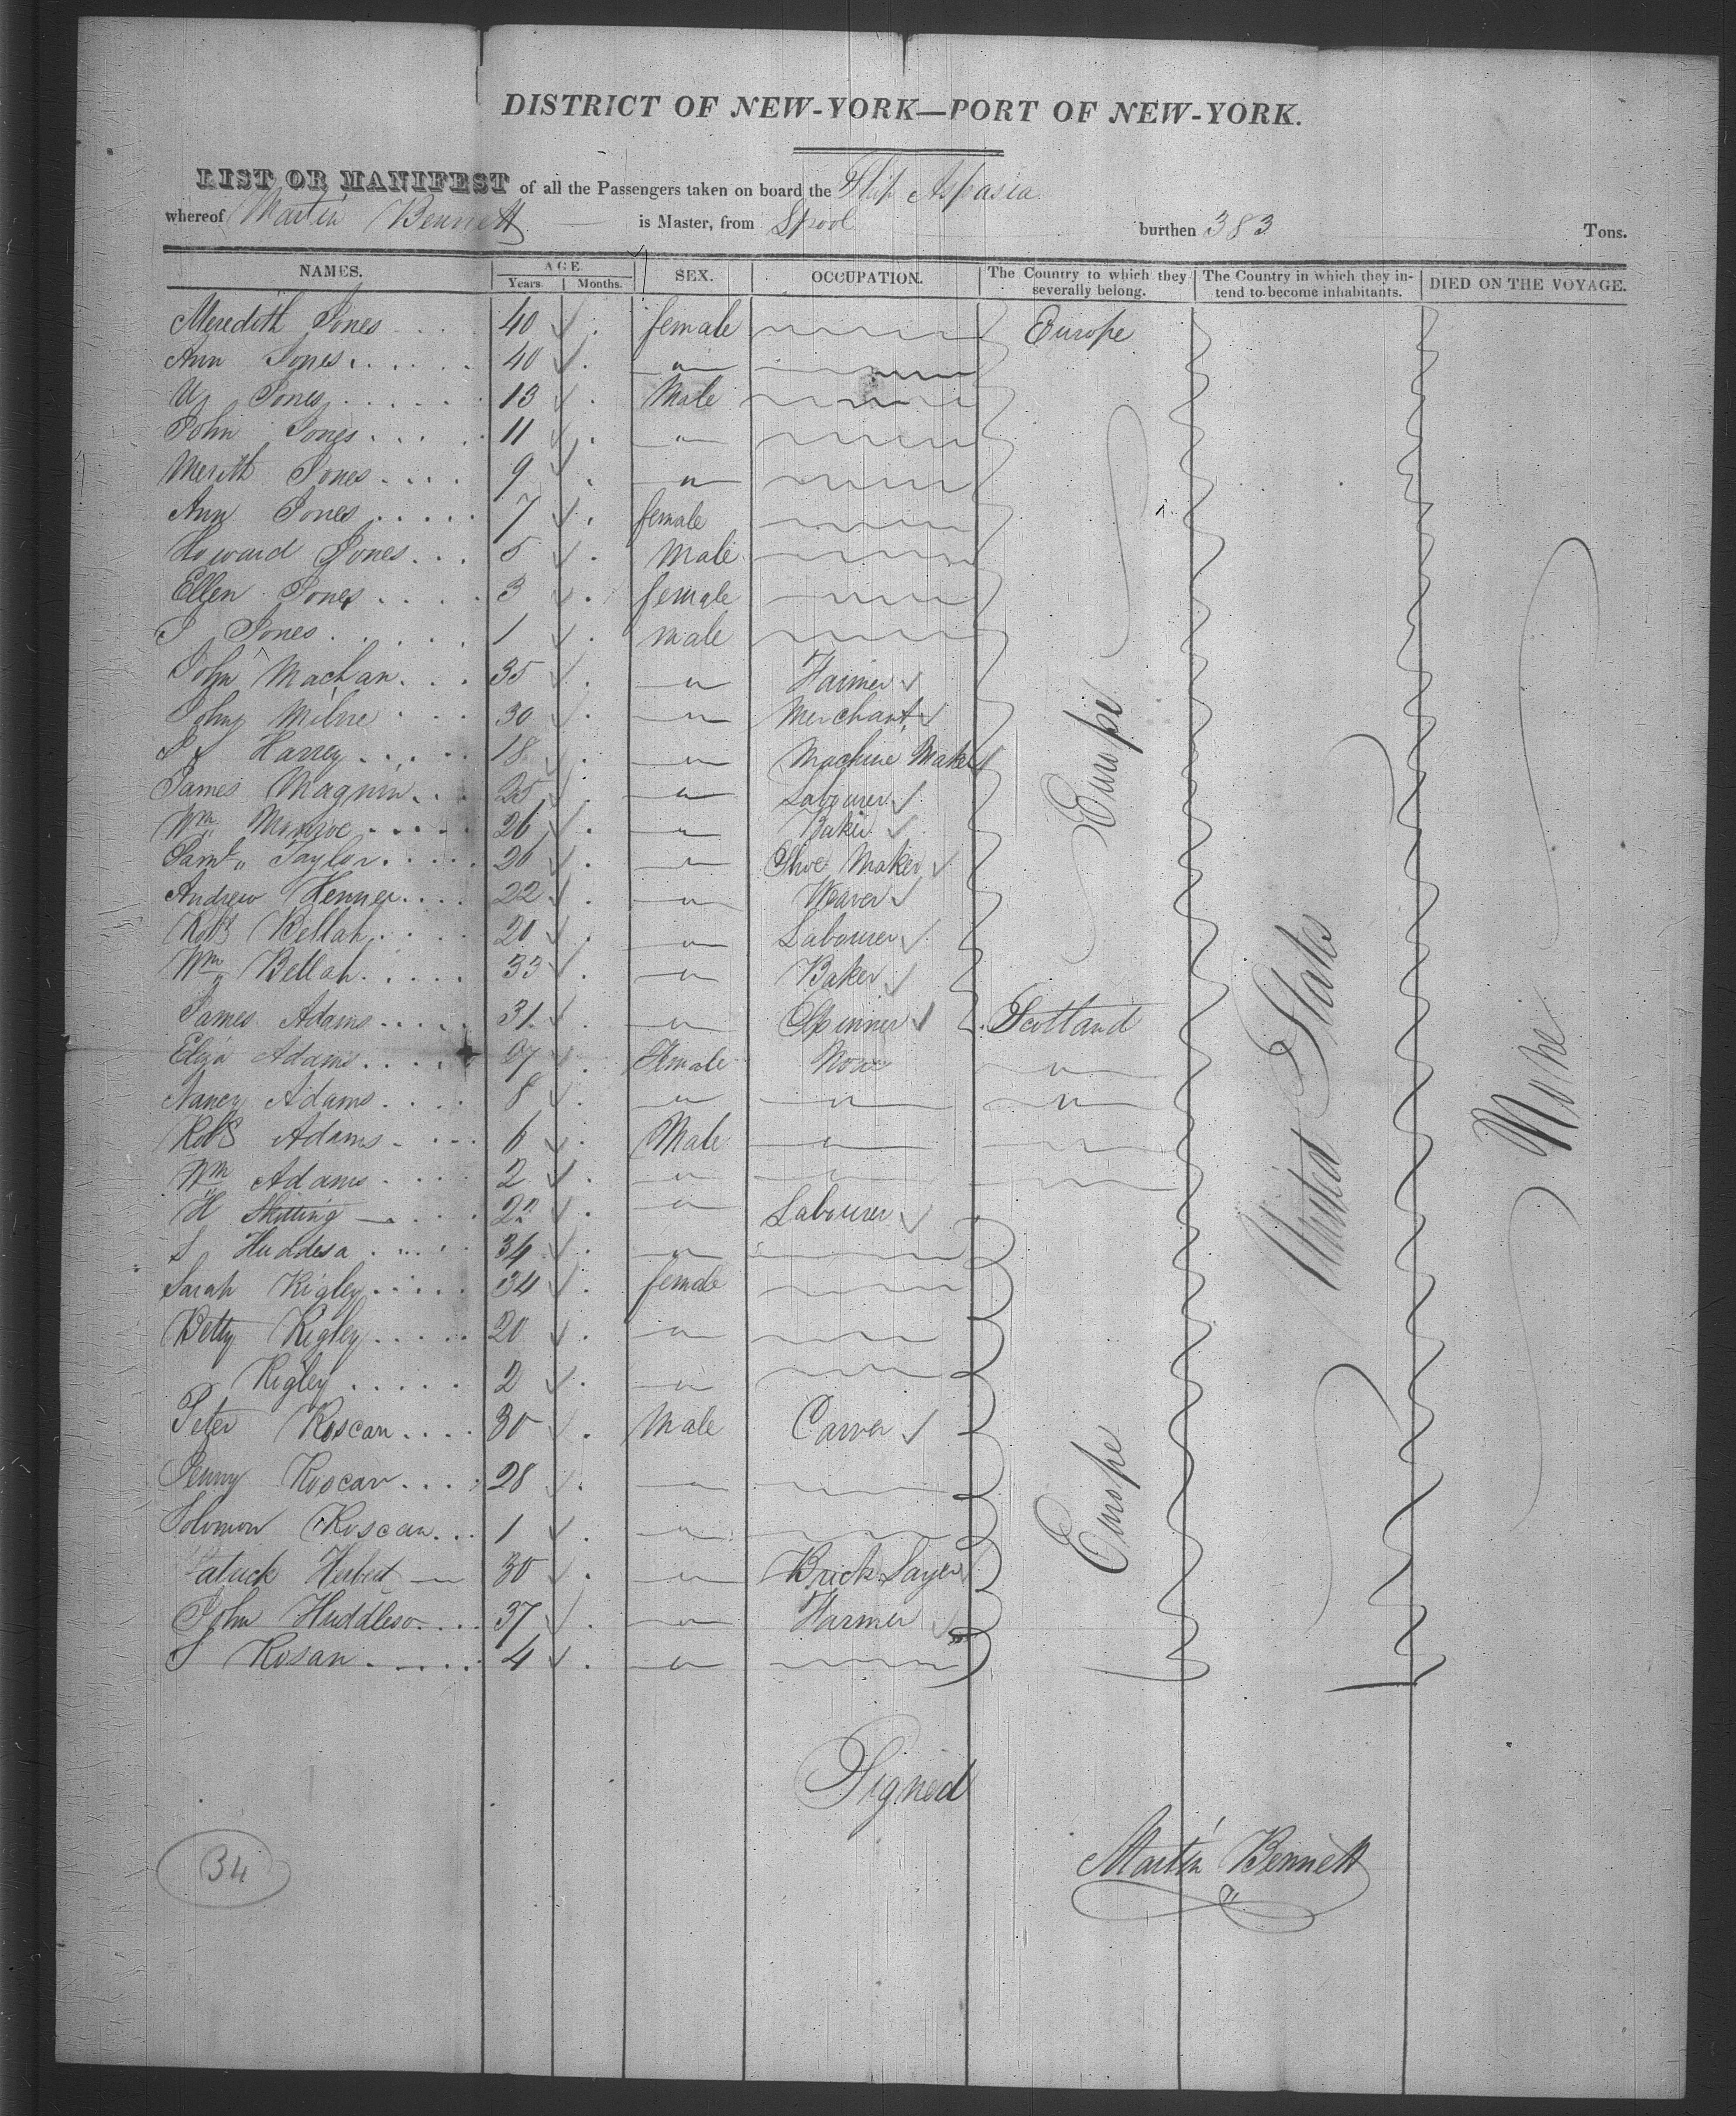 DISTRICT OF NEW-YORK—PORT OF NEW-YORK.
LIST OR MANIFEST of all the Passengers taken on board the Ship Aspasia
whereof Martin Bennett is Master, from Lpool burthen 383 Tons.
NAMES. AGE. SEX. OCCUPATION. The Country to which they severally belong. The Country in which they intend to become inhabitants. DIED ON THE VOYAGE.
Years. Months.
Meredith Jones 40 female Europe
Ann Jones 40 "
Jones 13 Male
John Jones 11 "
Merith Jones 9 "
Ann Jones 7 female
Howard Jones 5 Male
Ellen Jones 3 female
J Jones 1 male
John Machan 35 " Farmer
John Milne 30 " Merchant
Harrey 18 " Machine Maker
James Magnin 25 " Labourer
Wm Monroe 26 " Baker
Saml Taylor 26 " Shoe Maker
Andrew Henner 22 " Weaver
Robt Bellah 20 " Labourer
Wm Bellah 33 " Baker
James Adams 31 " Spinner Scotland
Eliza Adams 27 Female None "
Nancy Adams 8 " " "
Robt Adams 6 Male "
Wm Adams 2 " "
H Skitting 22 " Labourer
S Huddesa 34 "
Sarah Rigley 34 female
Betty Rigley 20 "
Rigley 2 "
Peter Roscan 30 Male Carver
Roscan 28
Solomon Roscan 1 "
Patrick Herbert 30 " Brick Layer
John Huddleso 37 " Farmer
S Rosan 4 "
Europe
Europe
United States
None
Signed
Martin Bennett
34